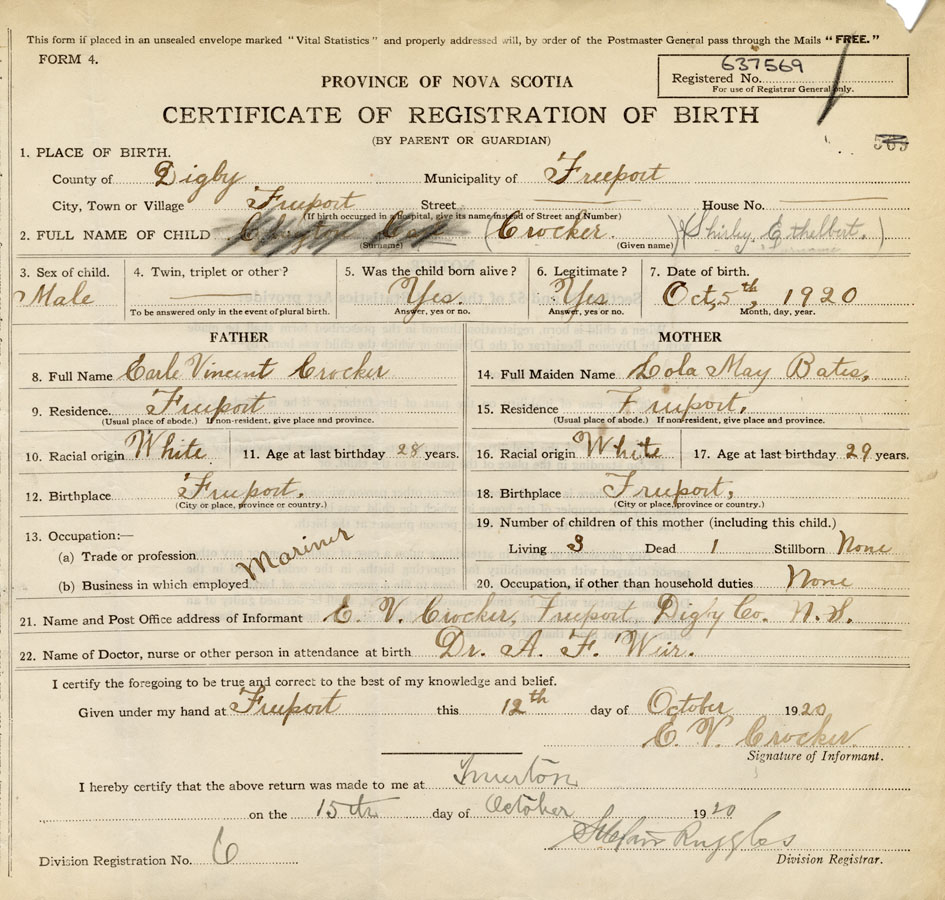 This form if placed in an unsealed envelope marked "Vital Statistics" and properly addressed will, by order of the Postmaster General pass through the Mails "FREE."
FORM 4.
637569
PROVINCE OF NOVA SCOTIA
Registered No.
For use of Registrar General only.
CERTIFICATE OF REGISTRATION OF BIRTH
(BY PARENT OR GUARDIAN)
1. PLACE OF BIRTH.
County of Digby Municipality of Freeport
City, Town or Village Freeport Street House No.
(If birth occurred in a hospital, give its name instead of Street and Number)
2. FULL NAME OF CHILD (Crocker.) (Shirley Ethelbert.)
(Surname) (Given name)
3. Sex of child. 4. Twin, triplet or other? 5. Was the child born alive? 6. Legitimate? 7. Date of birth.
Male Yes. Yes Oct, 5th, 1920
To be answered only in the event of plural birth. Answer, yes or no. Answer, yes or no. Month, day, year.
FATHER MOTHER
8. Full Name Earle Vincent Crocker 14. Full Maiden Name Lola May Bates,
9. Residence Freeport 15. Residence Freeport,
(Usual place of abode.) If non-resident, give place and province. (Usual place of abode.) If non-resident, give place and province.
10. Racial origin White 11. Age at last birthday 28 years. 16. Racial origin White 17. Age at last birthday 29 years.
12. Birthplace Freeport, 18. Birthplace Freeport,
(City or place, province or country.) (City or place, province or country.)
19. Number of children of this mother (including this child.)
13. Occupation:—
(a) Trade or profession Living 3 Dead 1 Stillborn None
Mariner
(b) Business in which employed 20. Occupation, if other than household duties None
21. Name and Post Office address of Informant E. V. Crocker, Freeport Digby Co. N.S.
22. Name of Doctor, nurse or other person in attendance at birth Dr. A. F. Weir.
I certify the foregoing to be true and correct to the best of my knowledge and belief.
Given under my hand at Freeport this 12th day of October 1920
E. V. Crocker
Signature of Informant.
I hereby certify that the above return was made to me at
on the 15th day of October 1920
Ruggles
Division Registration No. 6 Division Registrar.